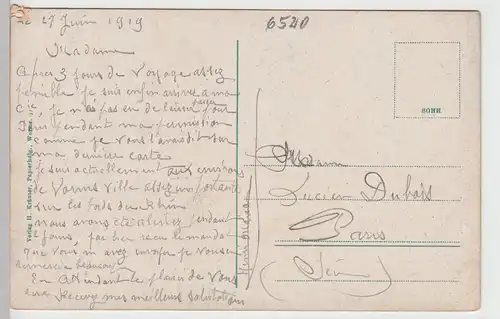 Le 27 Juin 1919
6520
Madame
Après 3 jours de Voyage assez
penible je suis enfin arrivé a ma
Cie je n'ai pas eu de laisser passer pour
Paris pendant ma permission
comme je vous l'avais dit sur
ma dernière carte
Je suis actuellement aux environs
de Worms Ville assez importante
sur les bords du Rhin
nous avons été alertes pendant
jours, pas hier recu le mandat
que Vous m'avez envoyé je Vous
remercie beaucoup
En Attendant le plaisir de Vous
Recevez mes meilleurs salutations
Verlag H. Kehrer, Papierhdlg., Worms.
SOHR
Madame
Lucien Dubois
Paris
(Seine)